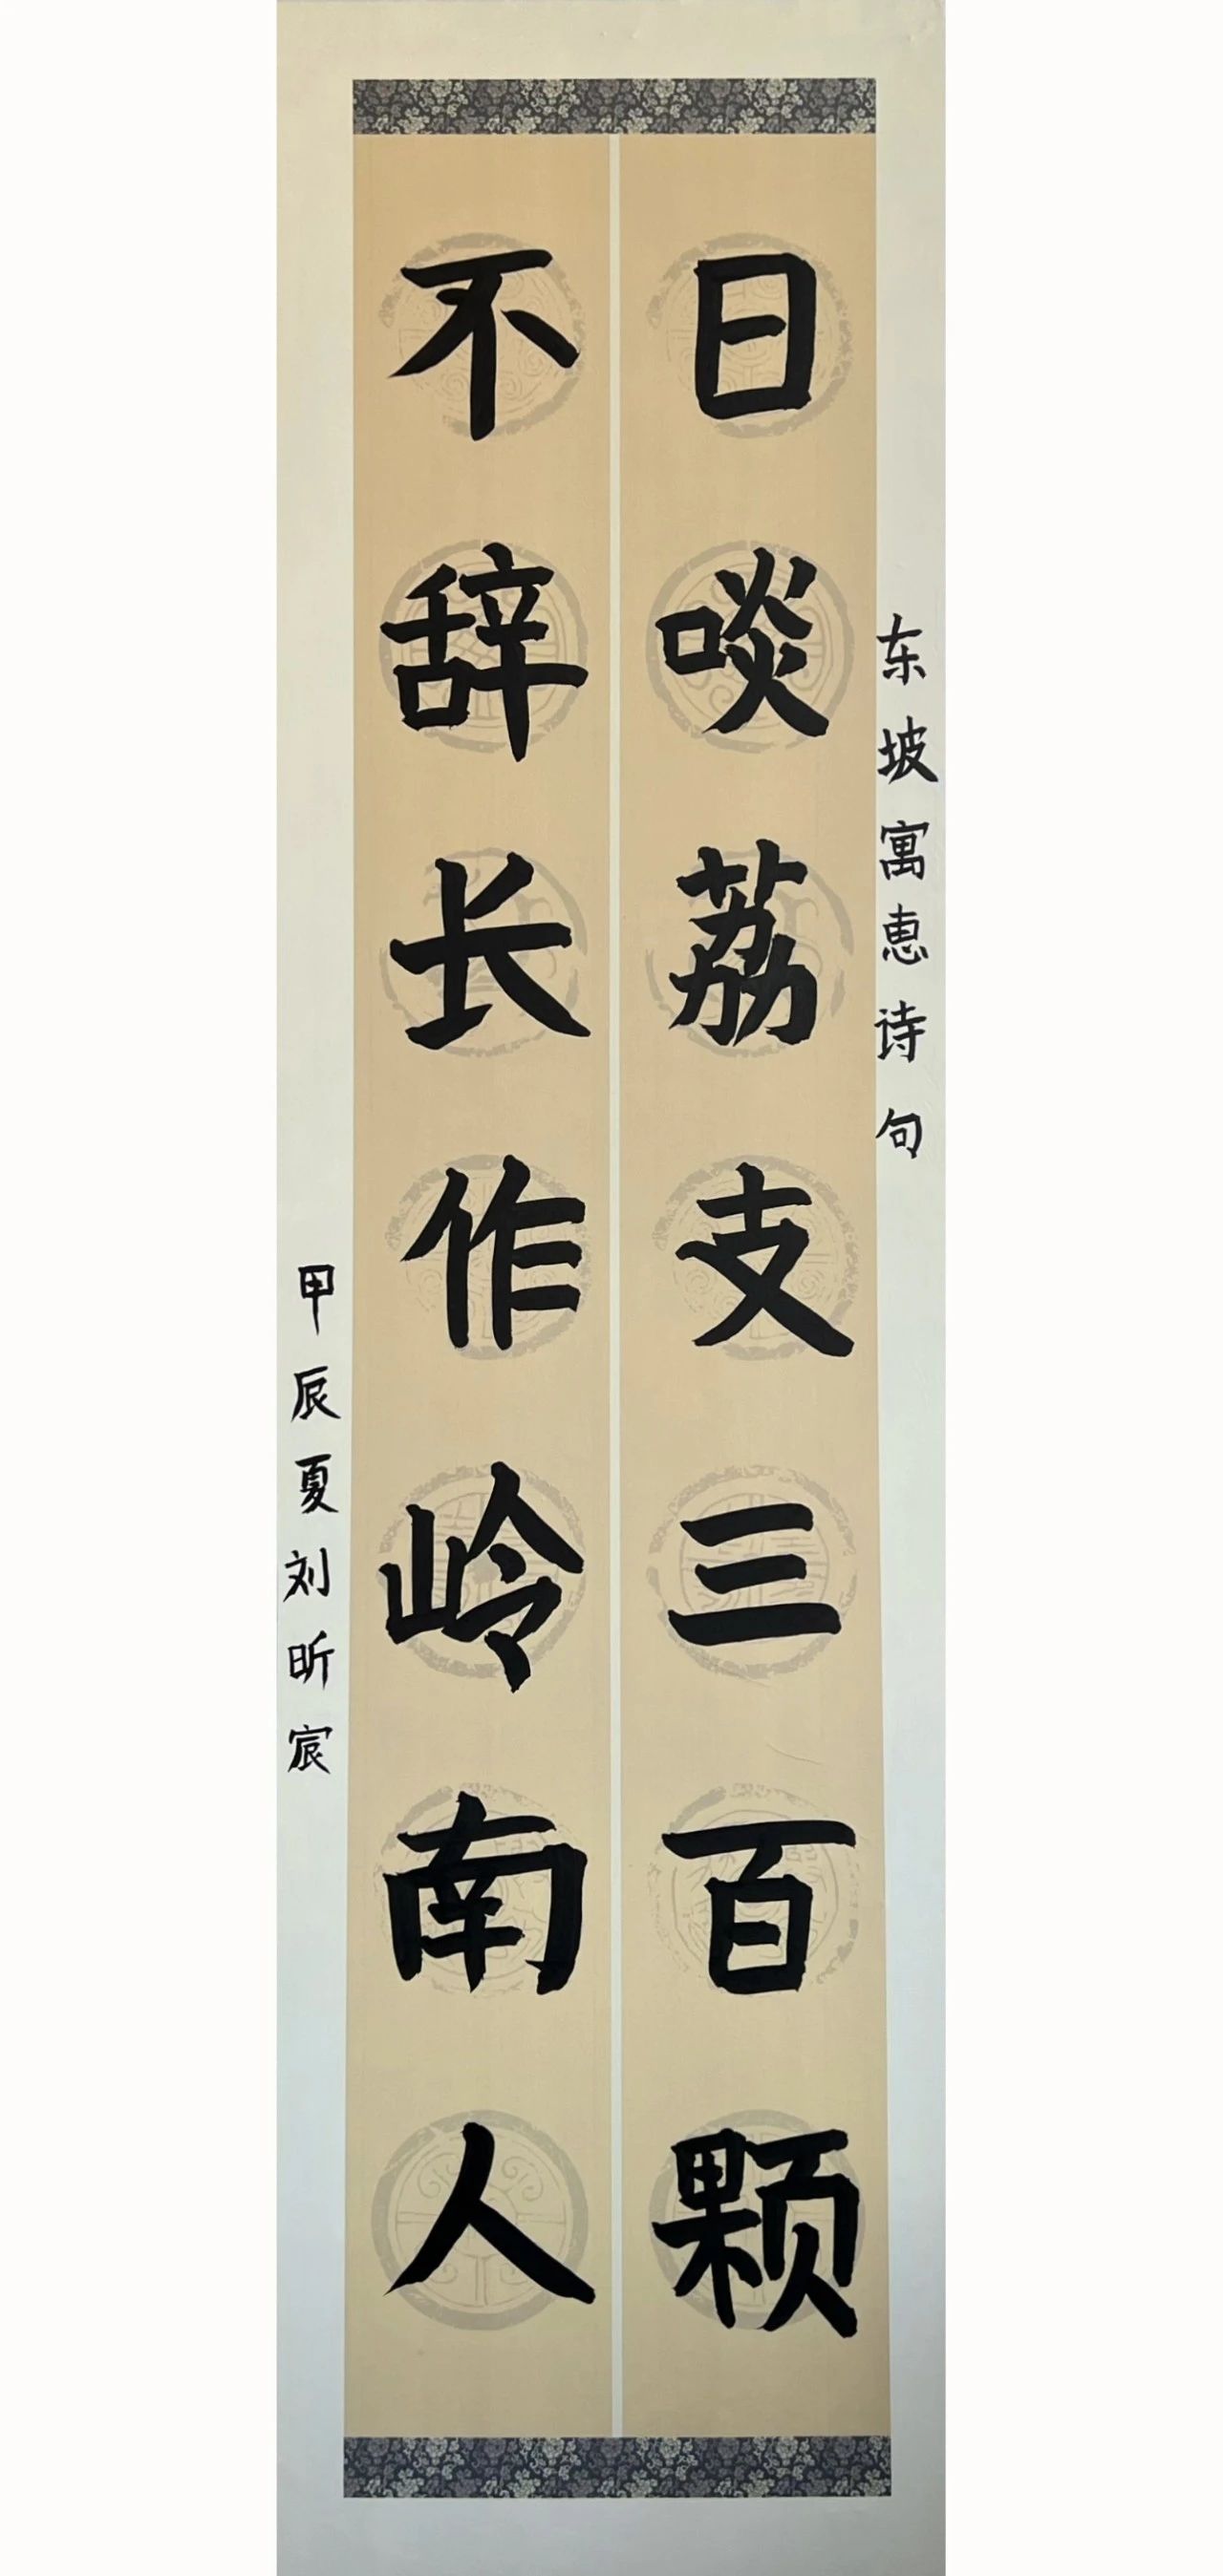 东坡寓惠诗句
日啖荔支三百颗
不辞长作岭南人
甲辰夏刘昕宸